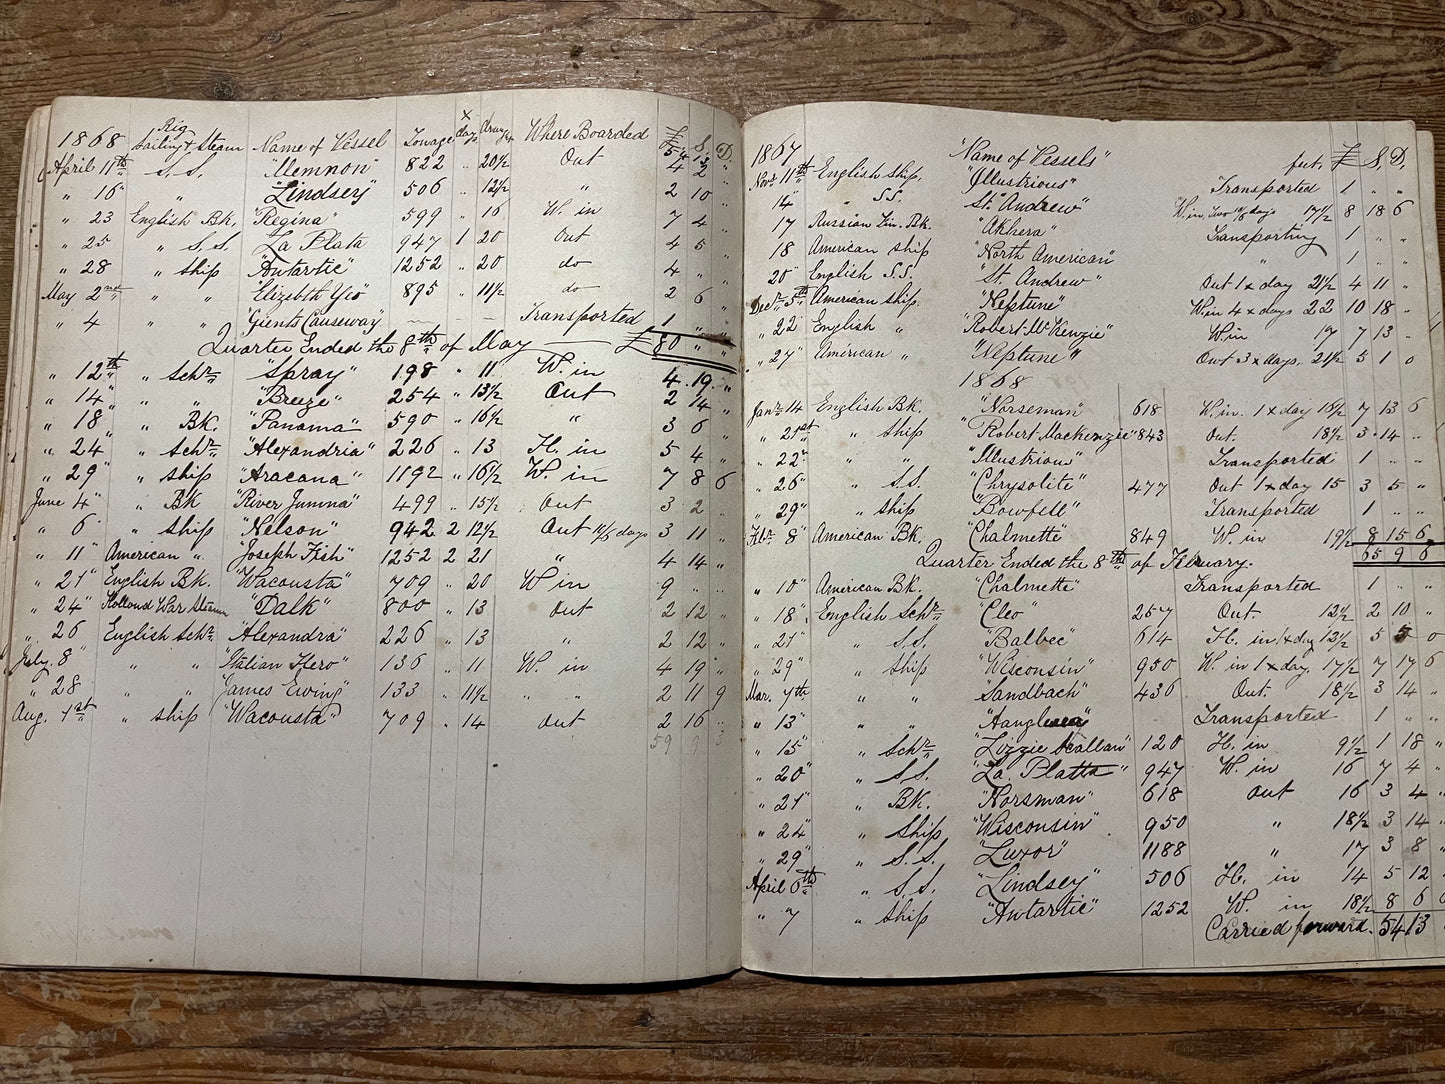 1868 Rig Sailing & Steam Name of Vessel Tonage x days draught Where Boarded £ S. D.
54 13
April 11th S. S. "Memnon" 822 " 20½ Out 4 2 "
" 16" " "Lindsey" 506 " 12½ " 2 10 "
" 23 English Bk. "Regina" 599 " 16 W. in 7 4 "
" 25 " S. S. La Plata 947 1 20 Out 4 5 "
" 28 " Ship "Antartic" 1252 " 20 do 4 " "
May 2nd " " "Elizebth Yeo" 895 " 11½ do 2 6 "
" 4 " " "Gients Causeway" — — — Transported 1 " "
Quarter Ended the 8th of May — £ 80 " "
" 12th " Schr. "Spray" 198 " 11 W. in 4 . 19. "
" 14" " " "Breeze" 254 " 13½ Out 2 14 "
" 18" " Bk. "Panama" 590 " 16½ " 3 6 "
" 24" " Schr. "Alexandria" 226 " 13 H. in 5 4 "
" 29" " Ship "Aracana" 1192 " 16½ W. in 7 8 6
June 4" " Bk "River Jumna" 499 " 15½ Out 3 2 "
" 6" " Ship "Nelson" 942 2 12½ Out 10/6 days 3 11 "
" 11" American " "Joseph Fish" 1252 2 21 " 4 14 "
" 21" English Bk. "Wacousta" 709 " 20 W in 9 " "
" 24" Holland War Steamer "Dalk" 800 " 13 Out 2 12 "
" 26 English Schr. "Alexandra" 226 " 13 " 2 12 "
July 8" " " "Italian Hero" 136 " 11 W. in 4 19 "
" 28 " " "James Ewing" 133 " 11½ " " 2 11 9
Aug. 1st " Ship "Wacousta" 709 " 14 Out 2 16 "
59 9 3
1867 "Name of Vessels" fut. £ S. D.
Novr 11th English Ship. "Illustrious" Transported 1 " "
14" " S.S. "St. Andrew" W. in, two 10/6 days 17½ 8 18 6
17 Russian Bk. "Akhera" Transporting 1 " "
18 American Ship "North American" " 1 " "
20" English S.S. "St. Andrew" Out 1 x day 21½ 4 11 "
Decr 5th American Ship. "Neptune" W. in 4 x days 22 10 18 "
" 22 English " "Robert McKenzie" W. in 17 7 13 "
" 27 American " "Neptune" Out 3 x days. 21½ 5 1 0
1868
Janr 14 English Bk. "Norseman" 618 W. in. 1 x day 16½ 7 13 6
" 21st " Ship "Robert MacKenzie" 843 Out. 18½ 3 . 14 "
" 22" " " "Illustrious" Transported 1 " "
" 26" " S.S. "Chrysolite" 477 Out 1 x day 15 3 5 "
" 29" " Ship "Bowfell" Transported 1 " "
Febr 8" American Bk. "Chalmette" 849 W. in 19½ 8 15 6
Quarter Ended the 8th of February. 65 9 6
" 10" American Bk. "Chalmette" Transported 1 " "
" 18" English Schr. "Cleo" 257 Out. 12½ 2 10 "
" 21" " S.S. "Balbec" 614 H. in 1 x day 13½ 5 5 0
" 29" " Ship "Wisconsin" 950 W. in 1 x day. 17½ 7 17 6
Mar. 7th " " Sandbach" 436 Out. 18½ 3 14 "
" 13" " " Transported 1 " "
" 15" " Schr. 120 H. in 9½ 1 18 "
" 20" " S.S. "La Platta" 947 W. in 16 7 4 "
" 21" " Bk. "Norsman" 618 Out 16 3 4 "
" 24" " Ship "Wisconsin" 950 " 18½ 3 14 "
" 29" " S.S. "Luxor" 1188 " 17 3 8 "
April 6th " S.S. "Lindsey" 506 H. in 14 5 12 "
" 7 " Ship "Antartic" 1252 W. in 18½ 8 6 6
Carried forward. 54 13